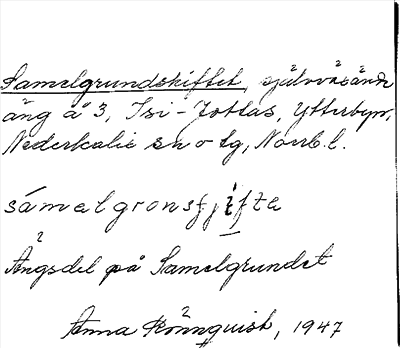 Samelgrundskiftet, självväsänd
äng å 3, Isi-Jottas, Ytterbyn,
Nederkalix sn o tg, Norrb. l.
sámelgronsfjifte
Ängsdel på Samelgrundet
Anna Rönnquist, 1947